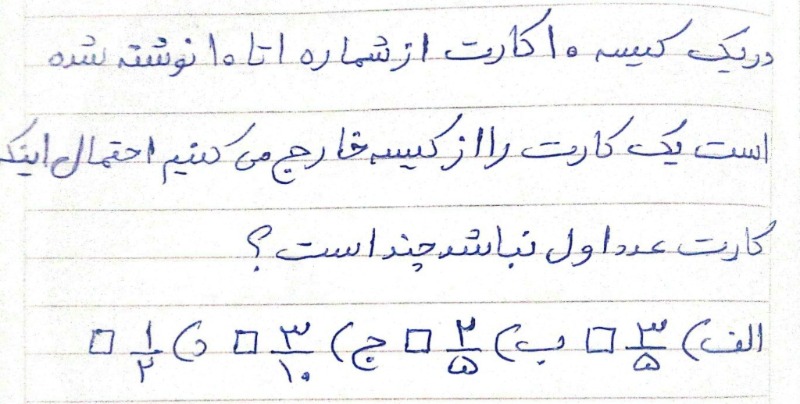 در یک کیسه ۱۰ کارت از شماره ۱ تا ۱۰ نوشته شده
است یک کارت را از کیسه خارج می کنیم احتمال اینکه
کارت عدد اول نباشد چند است ؟
الف) ۳/۵ □ ب) ۲/۵ □ ج) ۳/۱۰ □ د) ۱/۲ □